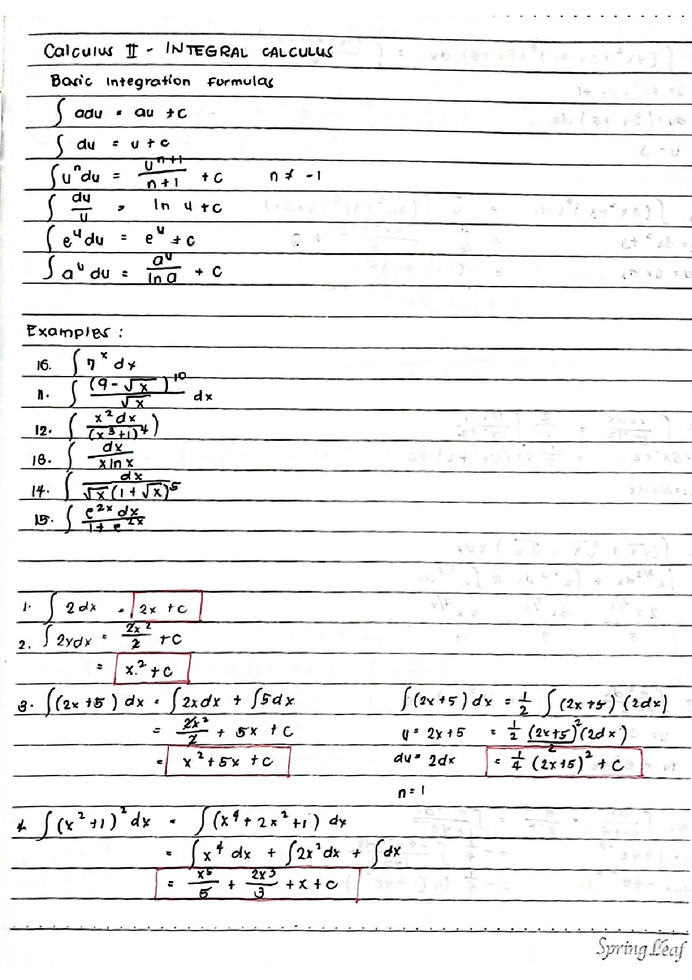 Calculus II - INTEGRAL CALCULUS
Basic Integration Formulas
∫ adu = au + c
∫ du = u + c
∫ uⁿ du = uⁿ⁺¹/n+1 + c  n ≠ -1
∫ du/u = ln u + c
∫ eᵘ du = eᵘ + c
∫ aᵘ du = aᵘ/ln a + c
Examples :
16. ∫ 7ˣ dx
11. ∫ (9 - √x)¹⁰/√x dx
12. ∫ x² dx/(x³+1)⁴)
13. ∫ dx/x ln x
14. ∫ dx/√x (1 + √x)⁵
15. ∫ e²ˣ dx/1 + e²ˣ
1. ∫ 2 dx = 2x + c
2. ∫ 2x dx = 2x²/2 + c
= x² + c
3. ∫(2x + 5) dx = ∫2x dx + ∫5 dx
= 2x²/2 + 5x + c
= x² + 5x + c
∫(2x+5) dx = 1/2 ∫ (2x+5) (2dx)
u = 2x+5 = 1/2 (2x+5)²/2 (2dx)
du = 2dx = 1/4 (2x+5)² + c
n = 1
4. ∫(x² + 1)² dx = ∫(x⁴ + 2x² + 1) dx
= ∫x⁴ dx + ∫2x² dx + ∫dx
= x⁵/5 + 2x³/3 + x + c
Spring Leaf